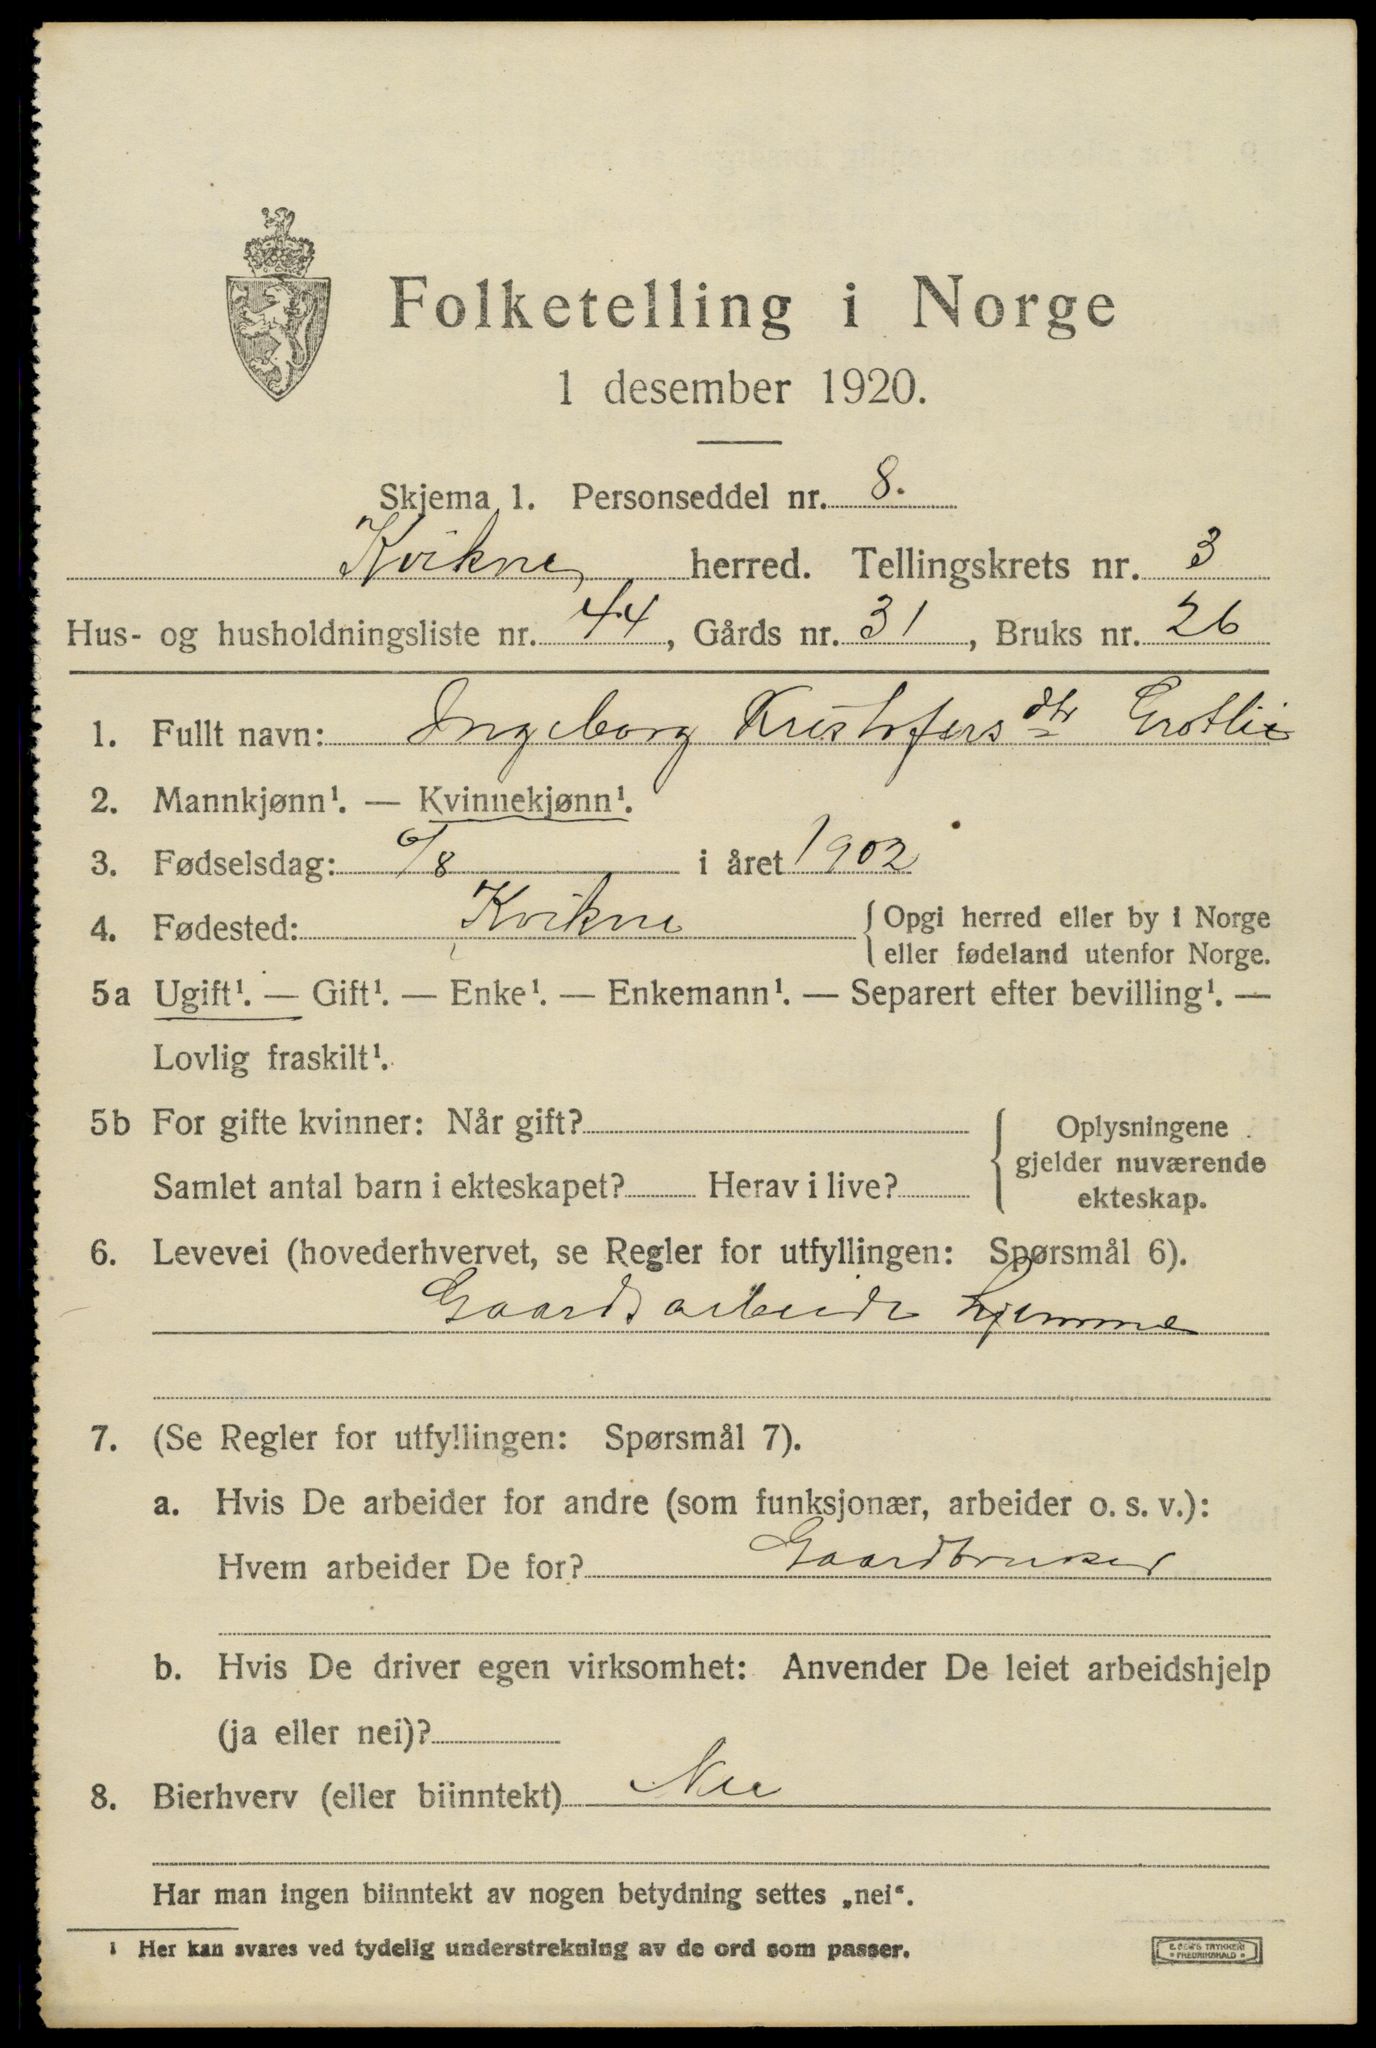 Folketelling i Norge
1 desember 1920.
Skjema 1. Personseddel nr. 8.
Kvikne herred. Tellingskrets nr. 3
Hus- og husholdningsliste nr. 44, Gårds nr. 31, Bruks nr. 26
1. Fullt navn: Ingeborg Kristofersdtr Grotlie
2. Mannkjønn¹. — Kvinnekjønn¹.
3. Fødselsdag: 6/8 i året 1902
4. Fødested: Kvikne { Opgi herred eller by i Norge
eller fødeland utenfor Norge.
5a Ugift¹. — Gift¹. — Enke¹. — Enkemann¹. — Separert efter bevilling¹. —
Lovlig fraskilt¹.
5b For gifte kvinner: Når gift?
Samlet antal barn i ekteskapet? Herav i live?
{ Oplysningene
gjelder nuværende
ekteskap.
6. Levevei (hovederhvervet, se Regler for utfyllingen: Spørsmål 6).
Gaardsarbeide hjemme
7. (Se Regler for utfyllingen: Spørsmål 7).
a. Hvis De arbeider for andre (som funksjonær, arbeider o. s. v.):
Hvem arbeider De for? Gaardbruker
b. Hvis De driver egen virksomhet: Anvender De leiet arbeidshjelp
(ja eller nei)?
8. Bierhverv (eller biinntekt) Nei
Har man ingen biinntekt av nogen betydning settes „nei“.
¹ Her kan svares ved tydelig understrekning av de ord som passer.
TRYKKERI
FREDRIKSHALD